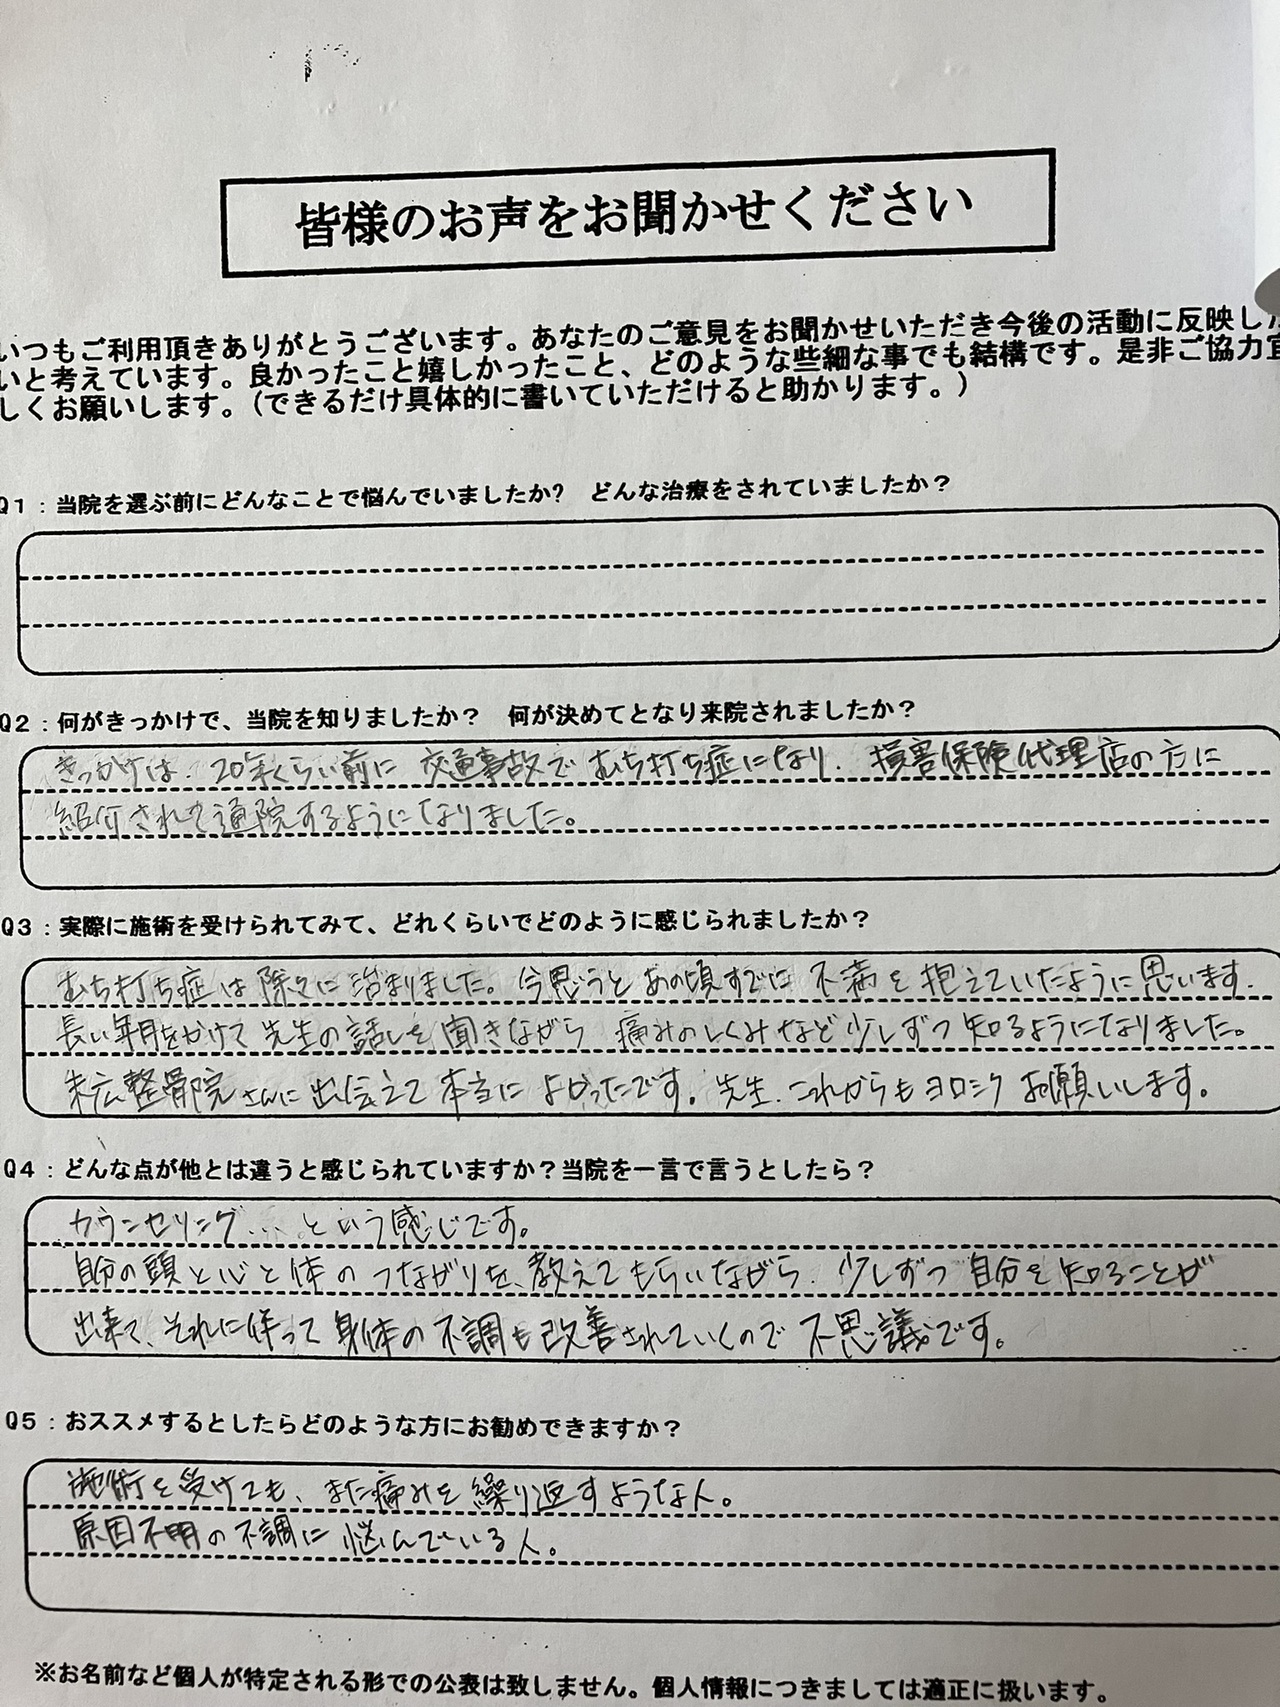 皆様のお声をお聞かせください
いつもご利用頂きありがとうございます。あなたのご意見をお聞かせいただき今後の活動に反映した
いと考えています。良かったこと嬉しかったこと、どのような些細な事でも結構です。是非ご協力宜
しくお願いします。(できるだけ具体的に書いていただけると助かります。)
Q1：当院を選ぶ前にどんなことで悩んでいましたか?　どんな治療をされていましたか？
Q2：何がきっかけで、当院を知りましたか？　何が決めてとなり来院されましたか？
きっかけは、20年くらい前に 交通事故で むち打ち症になり、損害保険代理店の方に
紹介されて通院するようになりました。
Q3：実際に施術を受けられてみて、どれくらいでどのように感じられましたか？
むち打ち症は除々に治まりました。今思うと あの頃すでに 不満を抱えていたように思います.
長い年月をかけて 先生の話しを聞きながら 痛みのしくみなど少しずつ知るようになりました。
末広整骨院さんに出会えて本当に よかったです。先生、これからもヨロシク お願いします。
Q4：どんな点が他とは違うと感じられていますか？当院を一言で言うとしたら？
カウンセリング...という感じです。
自分の頭と心と体の つながりを、教えてもらいながら、少しずつ 自分を知ることが
出来て、それに伴って 身体の不調も改善されていくので 不思議です。
Q5：おススメするとしたらどのような方にお勧めできますか？
施術を受けても、また痛みを繰り返すような人。
原因不明の不調に悩んでいる人。
※お名前など個人が特定される形での公表は致しません。個人情報につきましては適正に扱います。